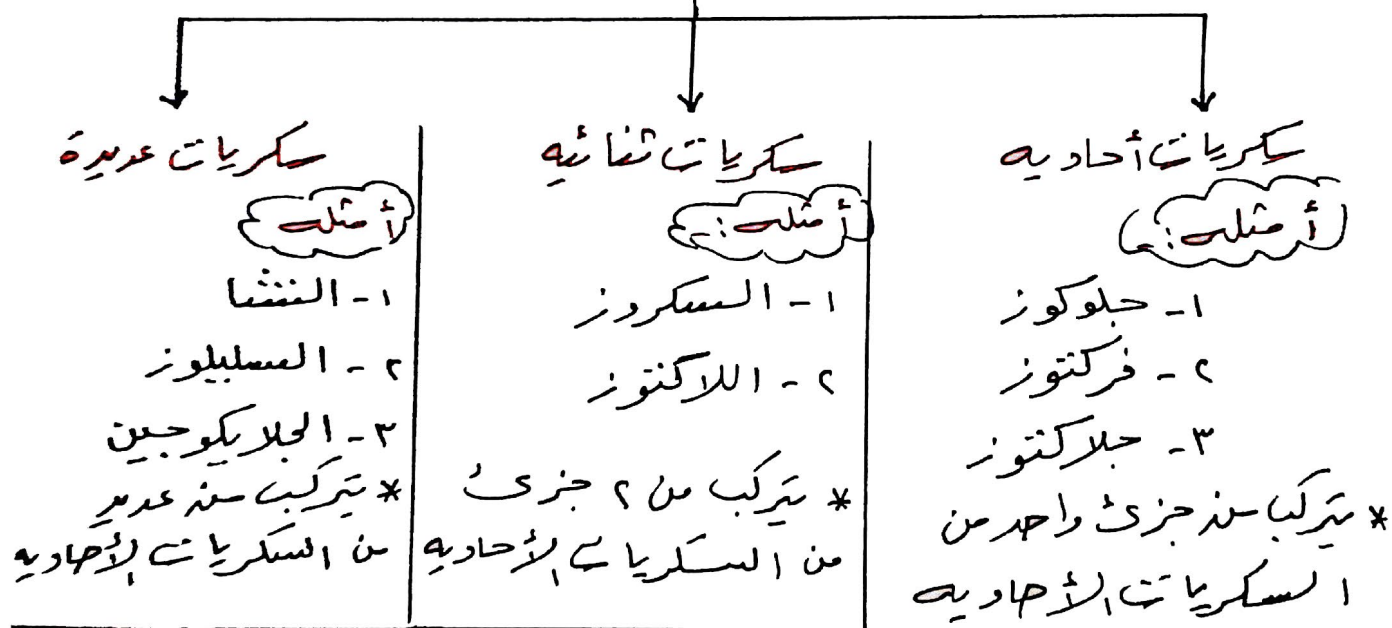 سكريات أحاديه
أمثله:
١- جلوكوز
٢- فركتوز
٣- جلاكتوز
* يتركب من جزئ واحد من
السكريات الأحاديه
سكريات ثنائيه
أمثله:
١- السكروز
٢- اللاكتوز
* يتركب من ٢ جزئ
من السكريات الأحاديه
سكريات عديدة
أمثله
١- النشا
٢- السليلوز
٣- الجلايكوجين
* يتركب من عديد
من السكريات الأحاديه